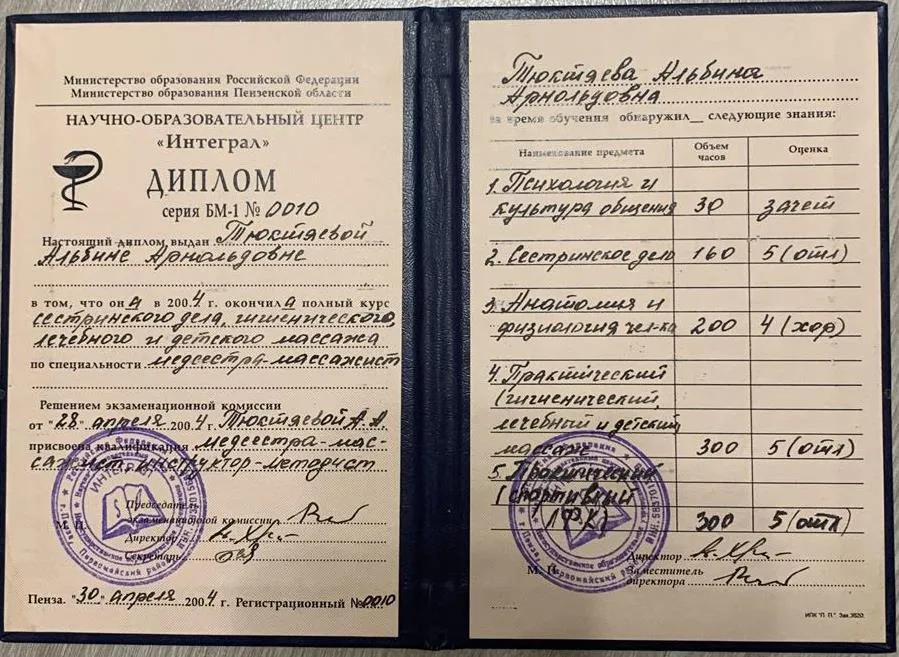 Министерство образования Российской Федерации
Министерство образования Пензенской области
НАУЧНО-ОБРАЗОВАТЕЛЬНЫЙ ЦЕНТР
«Интеграл»
ДИПЛОМ
серия БМ-1 № 0010
Настоящий диплом выдан Тюктяевой
Альбине Арнольдовне
в том, что она в 2004 г. окончила полный курс
сестринского дела, гигиенического,
лечебного и детского массажа
по специальности медсестра-массажист
Решением экзаменационной комиссии
от "28" апреля 2004 г. Тюктяевой А.А
присвоена квалификация медсестра-мас-
сажист инструктор-методист
ИНТЕГРАЛ
Председатель
М. П. экзаменационной комиссии
Директор
Секретарь
г. Пенза, Первомайский район
Пенза. "30" апреля 2004 г. Регистрационный №0010
Тюктяева Альбина
Арнольдовна
за время обучения обнаружил__ следующие знания:
Наименование предмета Объем часов Оценка
1. Психология и
культура общения 30 зачет
2. Сестринское дело 160 5 (отл)
3. Анатомия и
физиология чел-ка 200 4 (хор)
4. Практический
(гигиенический,
лечебный и детский
массаж 300 5 (отл)
5. Практический
(спортивный
300 5 (отл)
Директор
М. П. Заместитель
директора